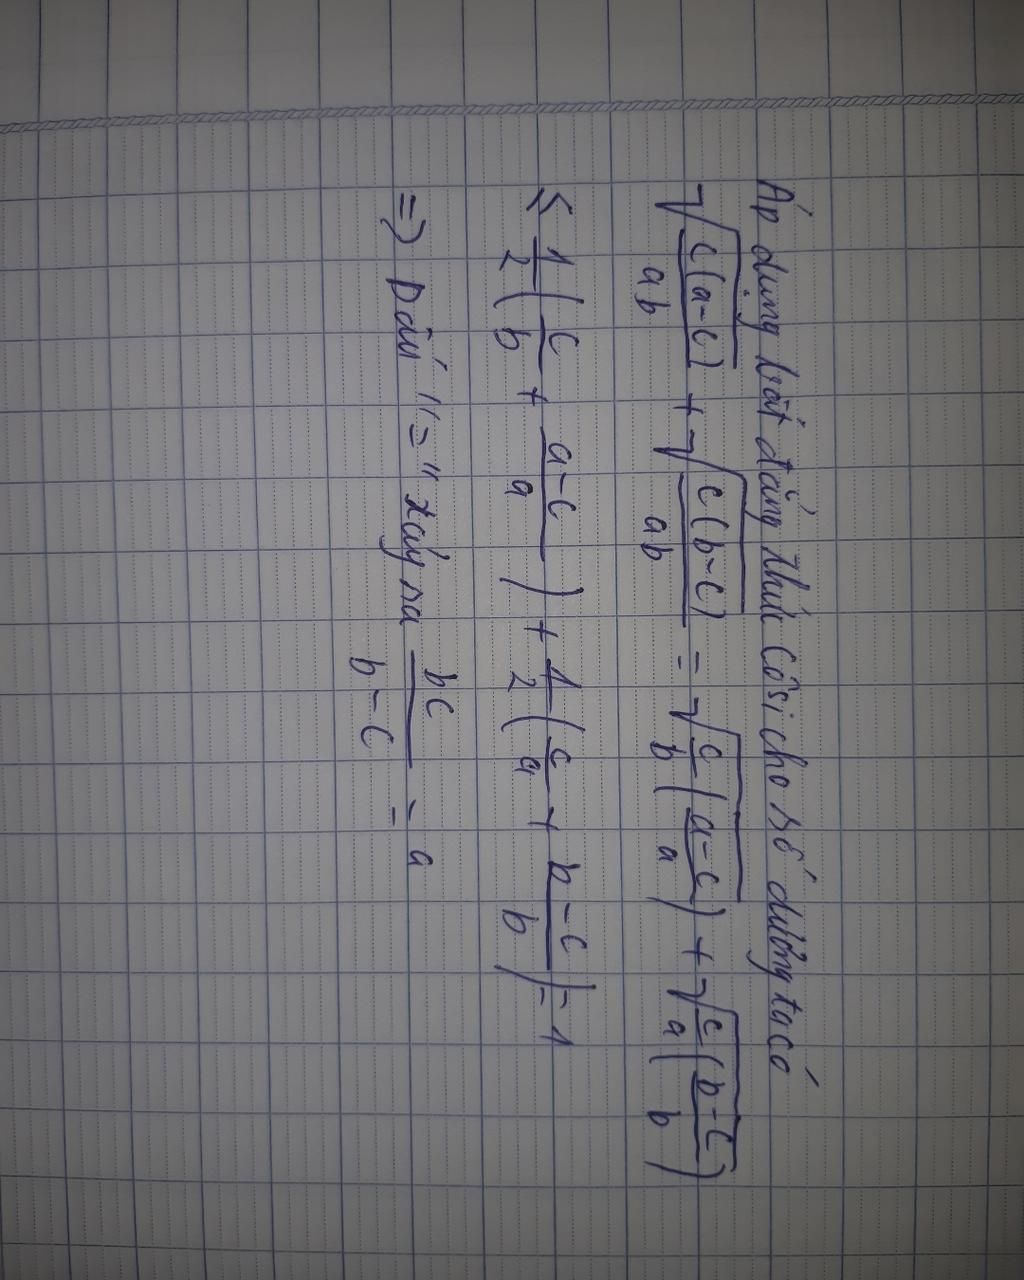 Áp dụng bất đẳng thức Côsi cho số dương ta có
√(c(a-c)/ab) + √(c(b-c)/ab) = √(c/b(a-c/a)) + √(c/a(b-c/b))
≤ 1/2(c/b + a-c/a) + 1/2(c/a + b-c/b) = 1
=> Dấu "=" xảy ra bc/b-c = a